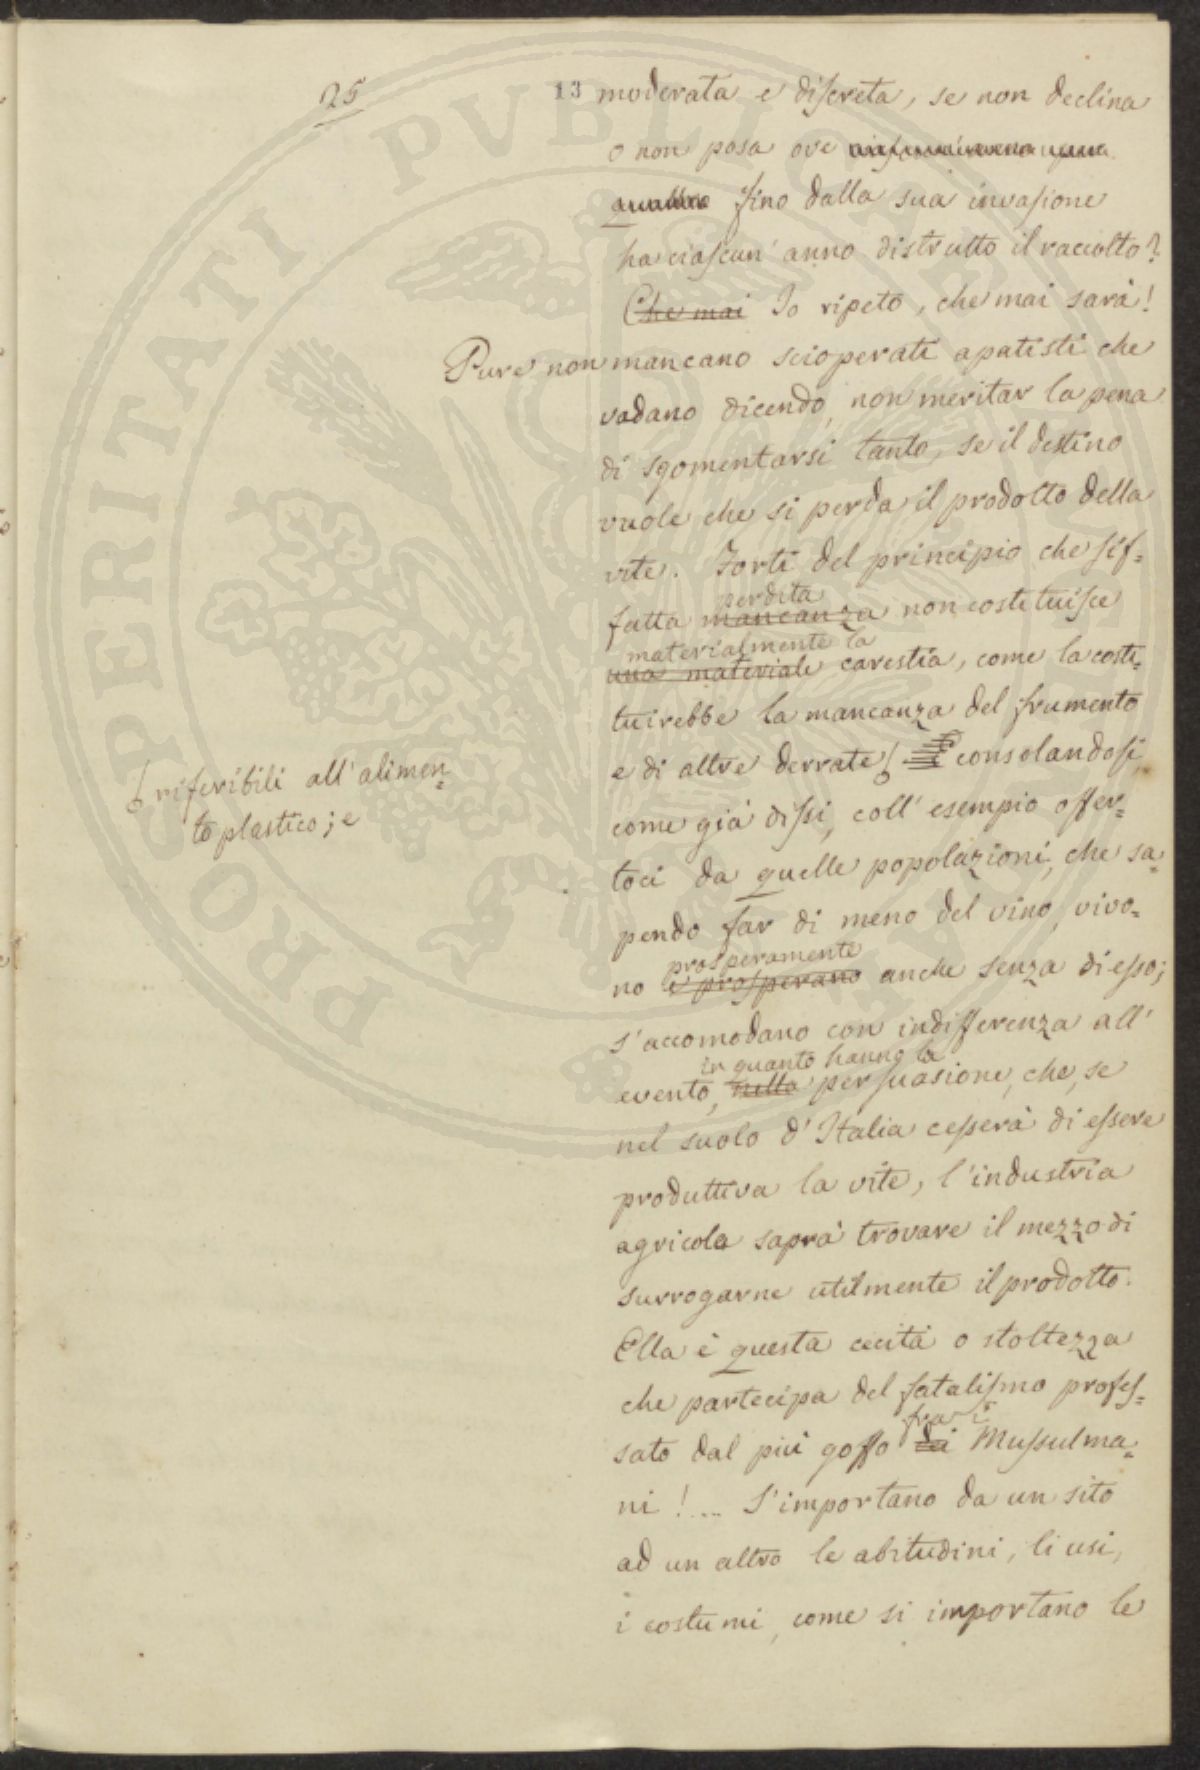 25
13
moderata e discreta, se non declina
o non posa ove
fino dalla sua invasione
ha ciascun' anno distrutto il raccolto?
Che mai Io ripeto, che mai sarà!
Pure non mancano scioperati apatisti che
vadano dicendo, non meritar la pena
di sgomentarsi tanto, se il destino
vuole che si perda il prodotto della
vite. Forti del principio che sif=
perdita
fatta mancanza non costituisce
materialmente la
una materiale carestia, come la costi=
tuirebbe la mancanza del frumento
e di altre derrate consolandosi,
riferibili all' alimen=
to plastico; e
come già dissi, coll' esempio offer=
toci da quelle popolazioni, che sa=
pendo far di meno del vino, vivo=
prosperamente
no e prosperano anche senza di esso;
s'accomodano con indifferenza all'
in quanto hanno la
evento, nella persuasione, che, se
nel suolo d' Italia cesserà di essere
produttiva la vite, l'industria
agricola saprà trovare il mezzo di
surrogarne utilmente il prodotto.
Ella è questa cecità o stoltezza
che partecipa del fatalismo profes=
fra i
sato dal più goffo di Mussulma=
ni !... S'importano da un sito
ad un altro le abitudini, li usi,
i costumi, come si importano le
PROSPERITATI PUBLICAE